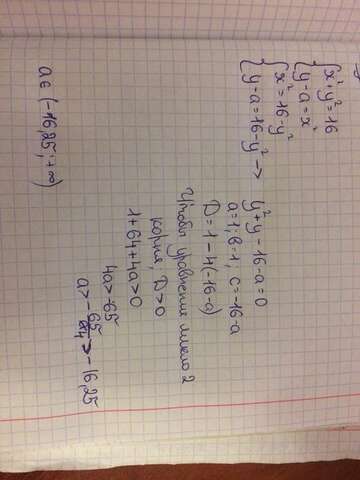 { x² + y² = 16
{ y - a = x²
{ x² = 16 - y²
{ y - a = 16 - y² →
y² + y - 16 - a = 0
a = 1; b = 1; c = -16 - a
D = 1 - 4(-16 - a)
Чтобы уравнение имело 2
корня, D > 0
1 + 64 + 4a > 0
4a > -65
a > -65/4 > -16,25
a ∈ (-16,25; +∞)